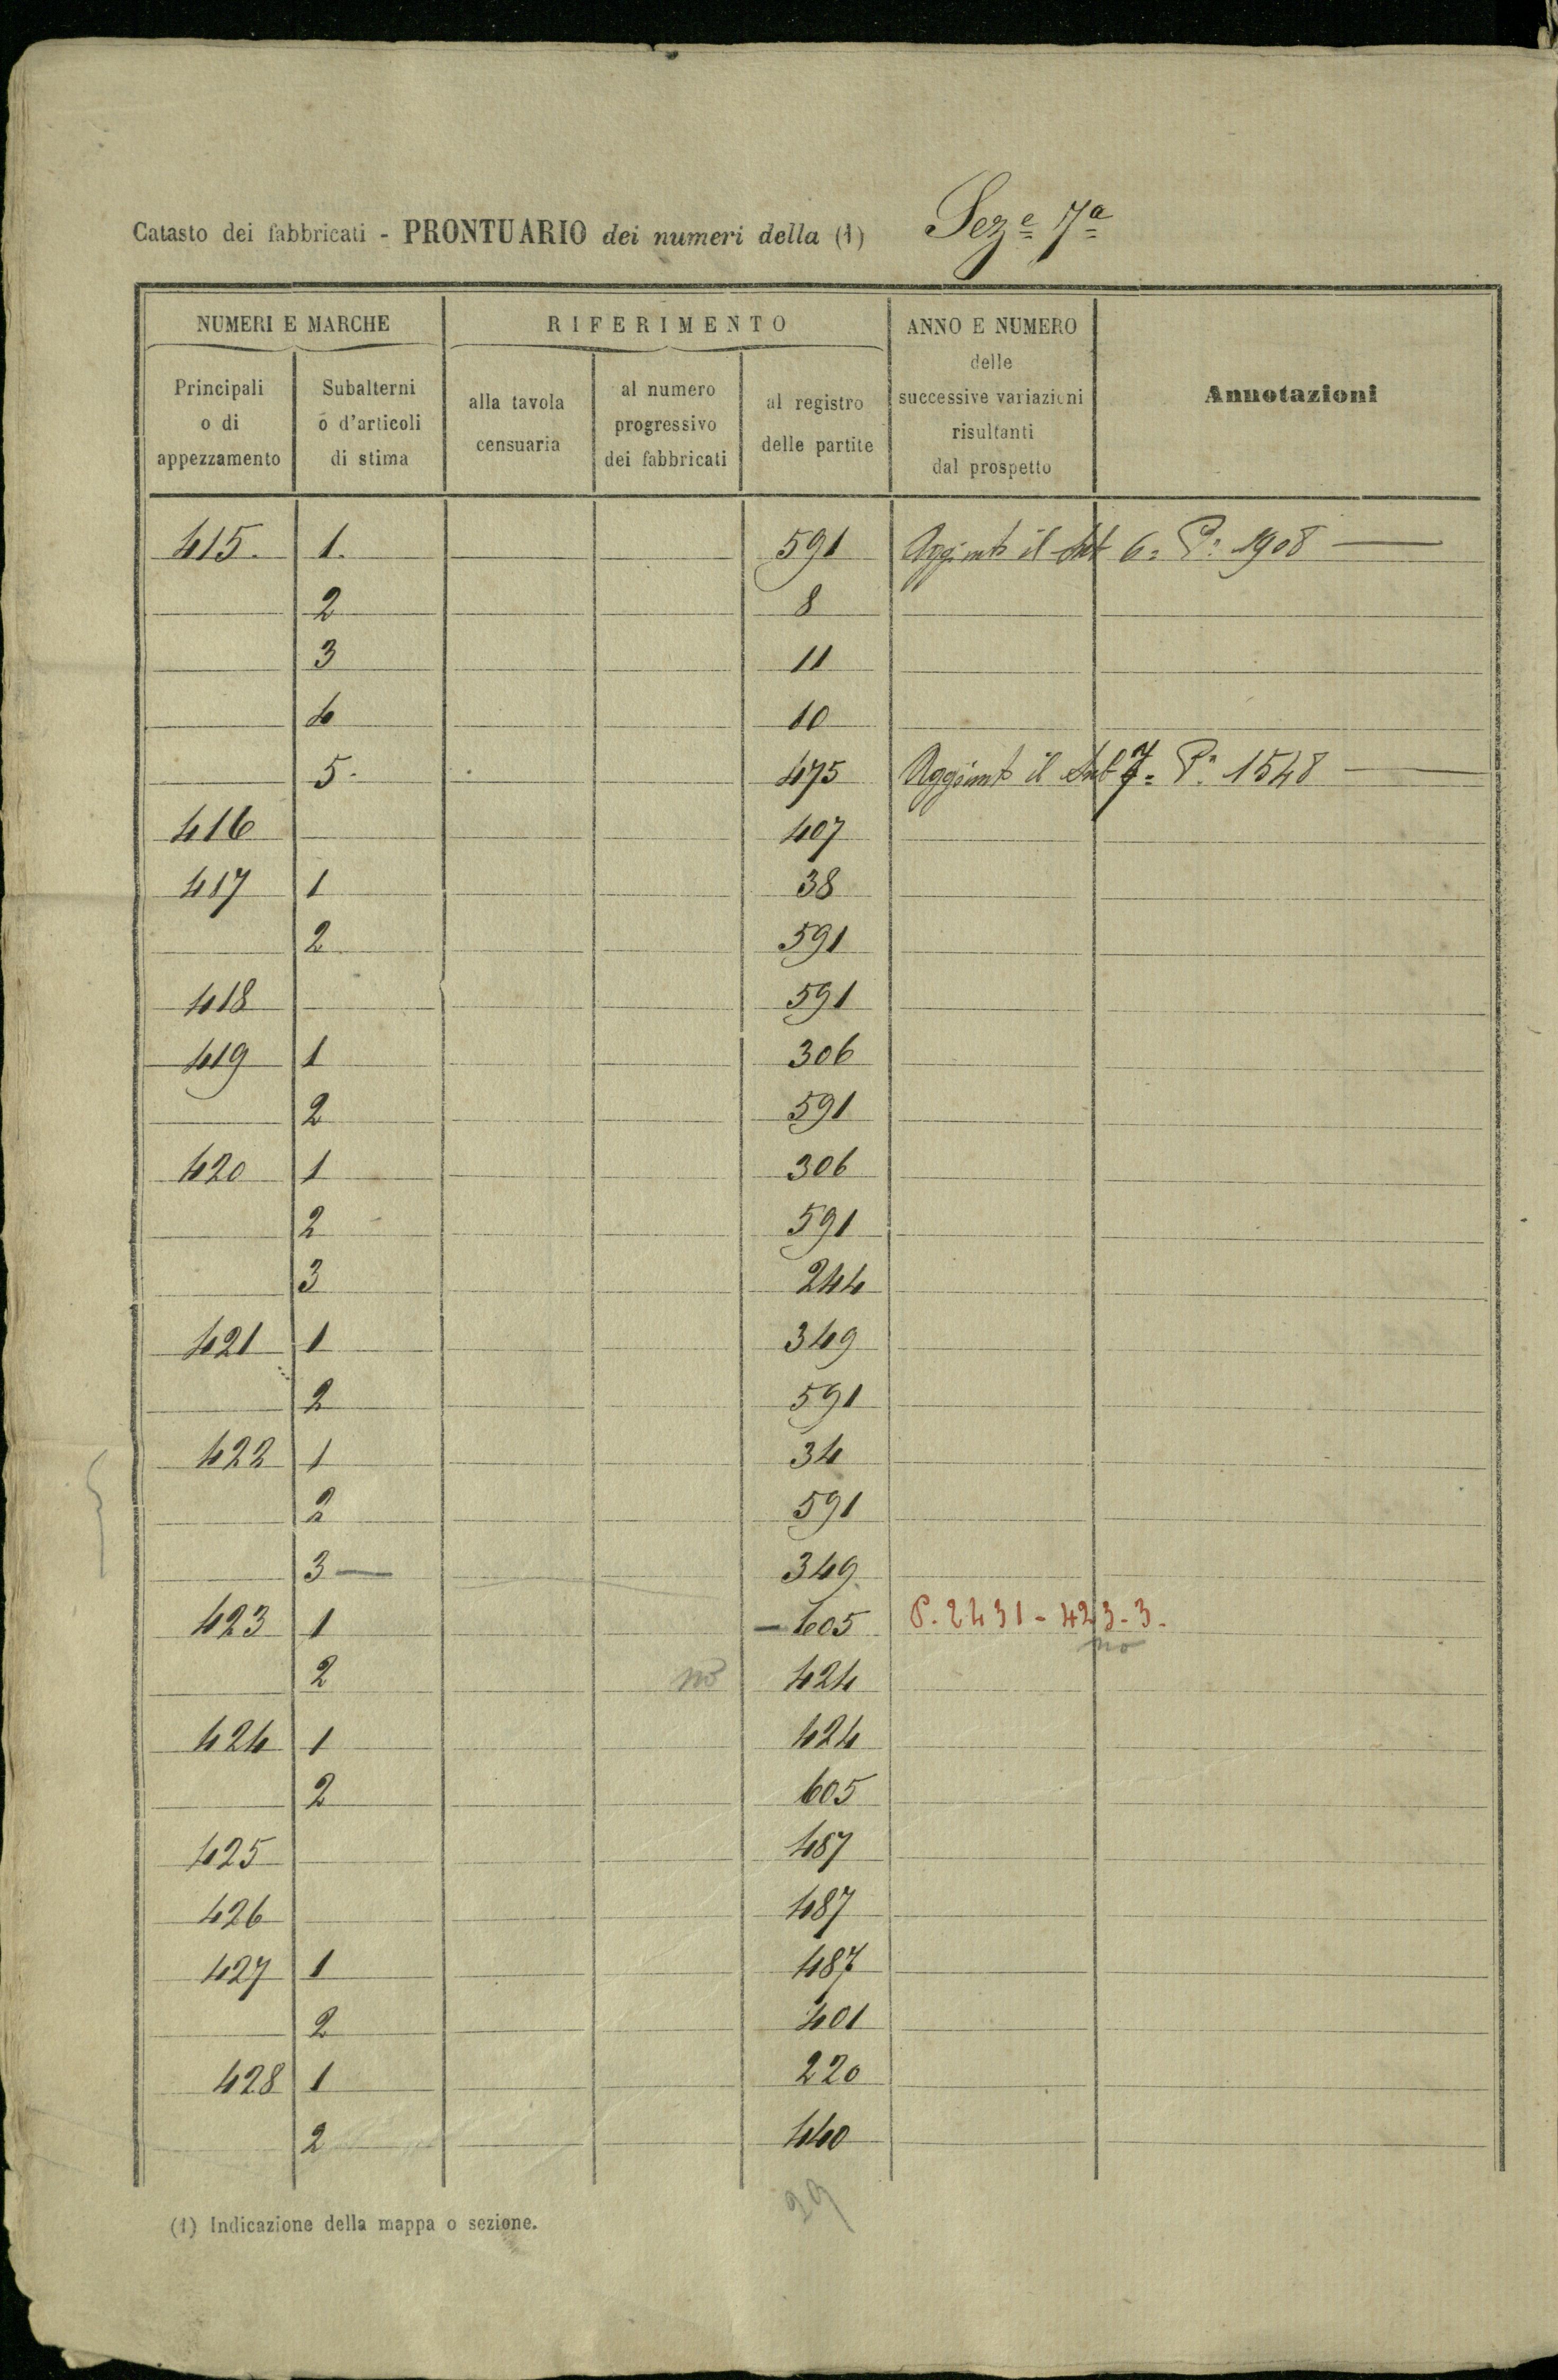 Catasto dei fabbricati - PRONTUARIO dei numeri della (1) Seze 7a
NUMERI E MARCHE
RIFERIMENTO
ANNO E NUMERO
delle
successive variazioni
risultanti
dal prospetto
Annotazioni
Principali
o di
appezzamento
Subalterni
o d'articoli
di stima
alla tavola
censuaria
al numero
progressivo
dei fabbricati
al registro
delle partite
415. 1. 591 Aggiunto il Sub 6= Pa 1908
2 8
3 11
4 10
5. 475 Aggiunto il Sub 7= Pa 1548
416 407
417 1 38
2 591
418 591
419 1 306
2 591
420 1 306
2 591
3 244
421 1 349
2 591
422 1 34
2 591
3 — 349
423 1 — 605 P. 2431 - 423 - 3.
no
2 no 424
424 1 424
2 605
425 487
426 487
427 1 487
2 401
428 1 220
2 440
29
(1) Indicazione della mappa o sezione.